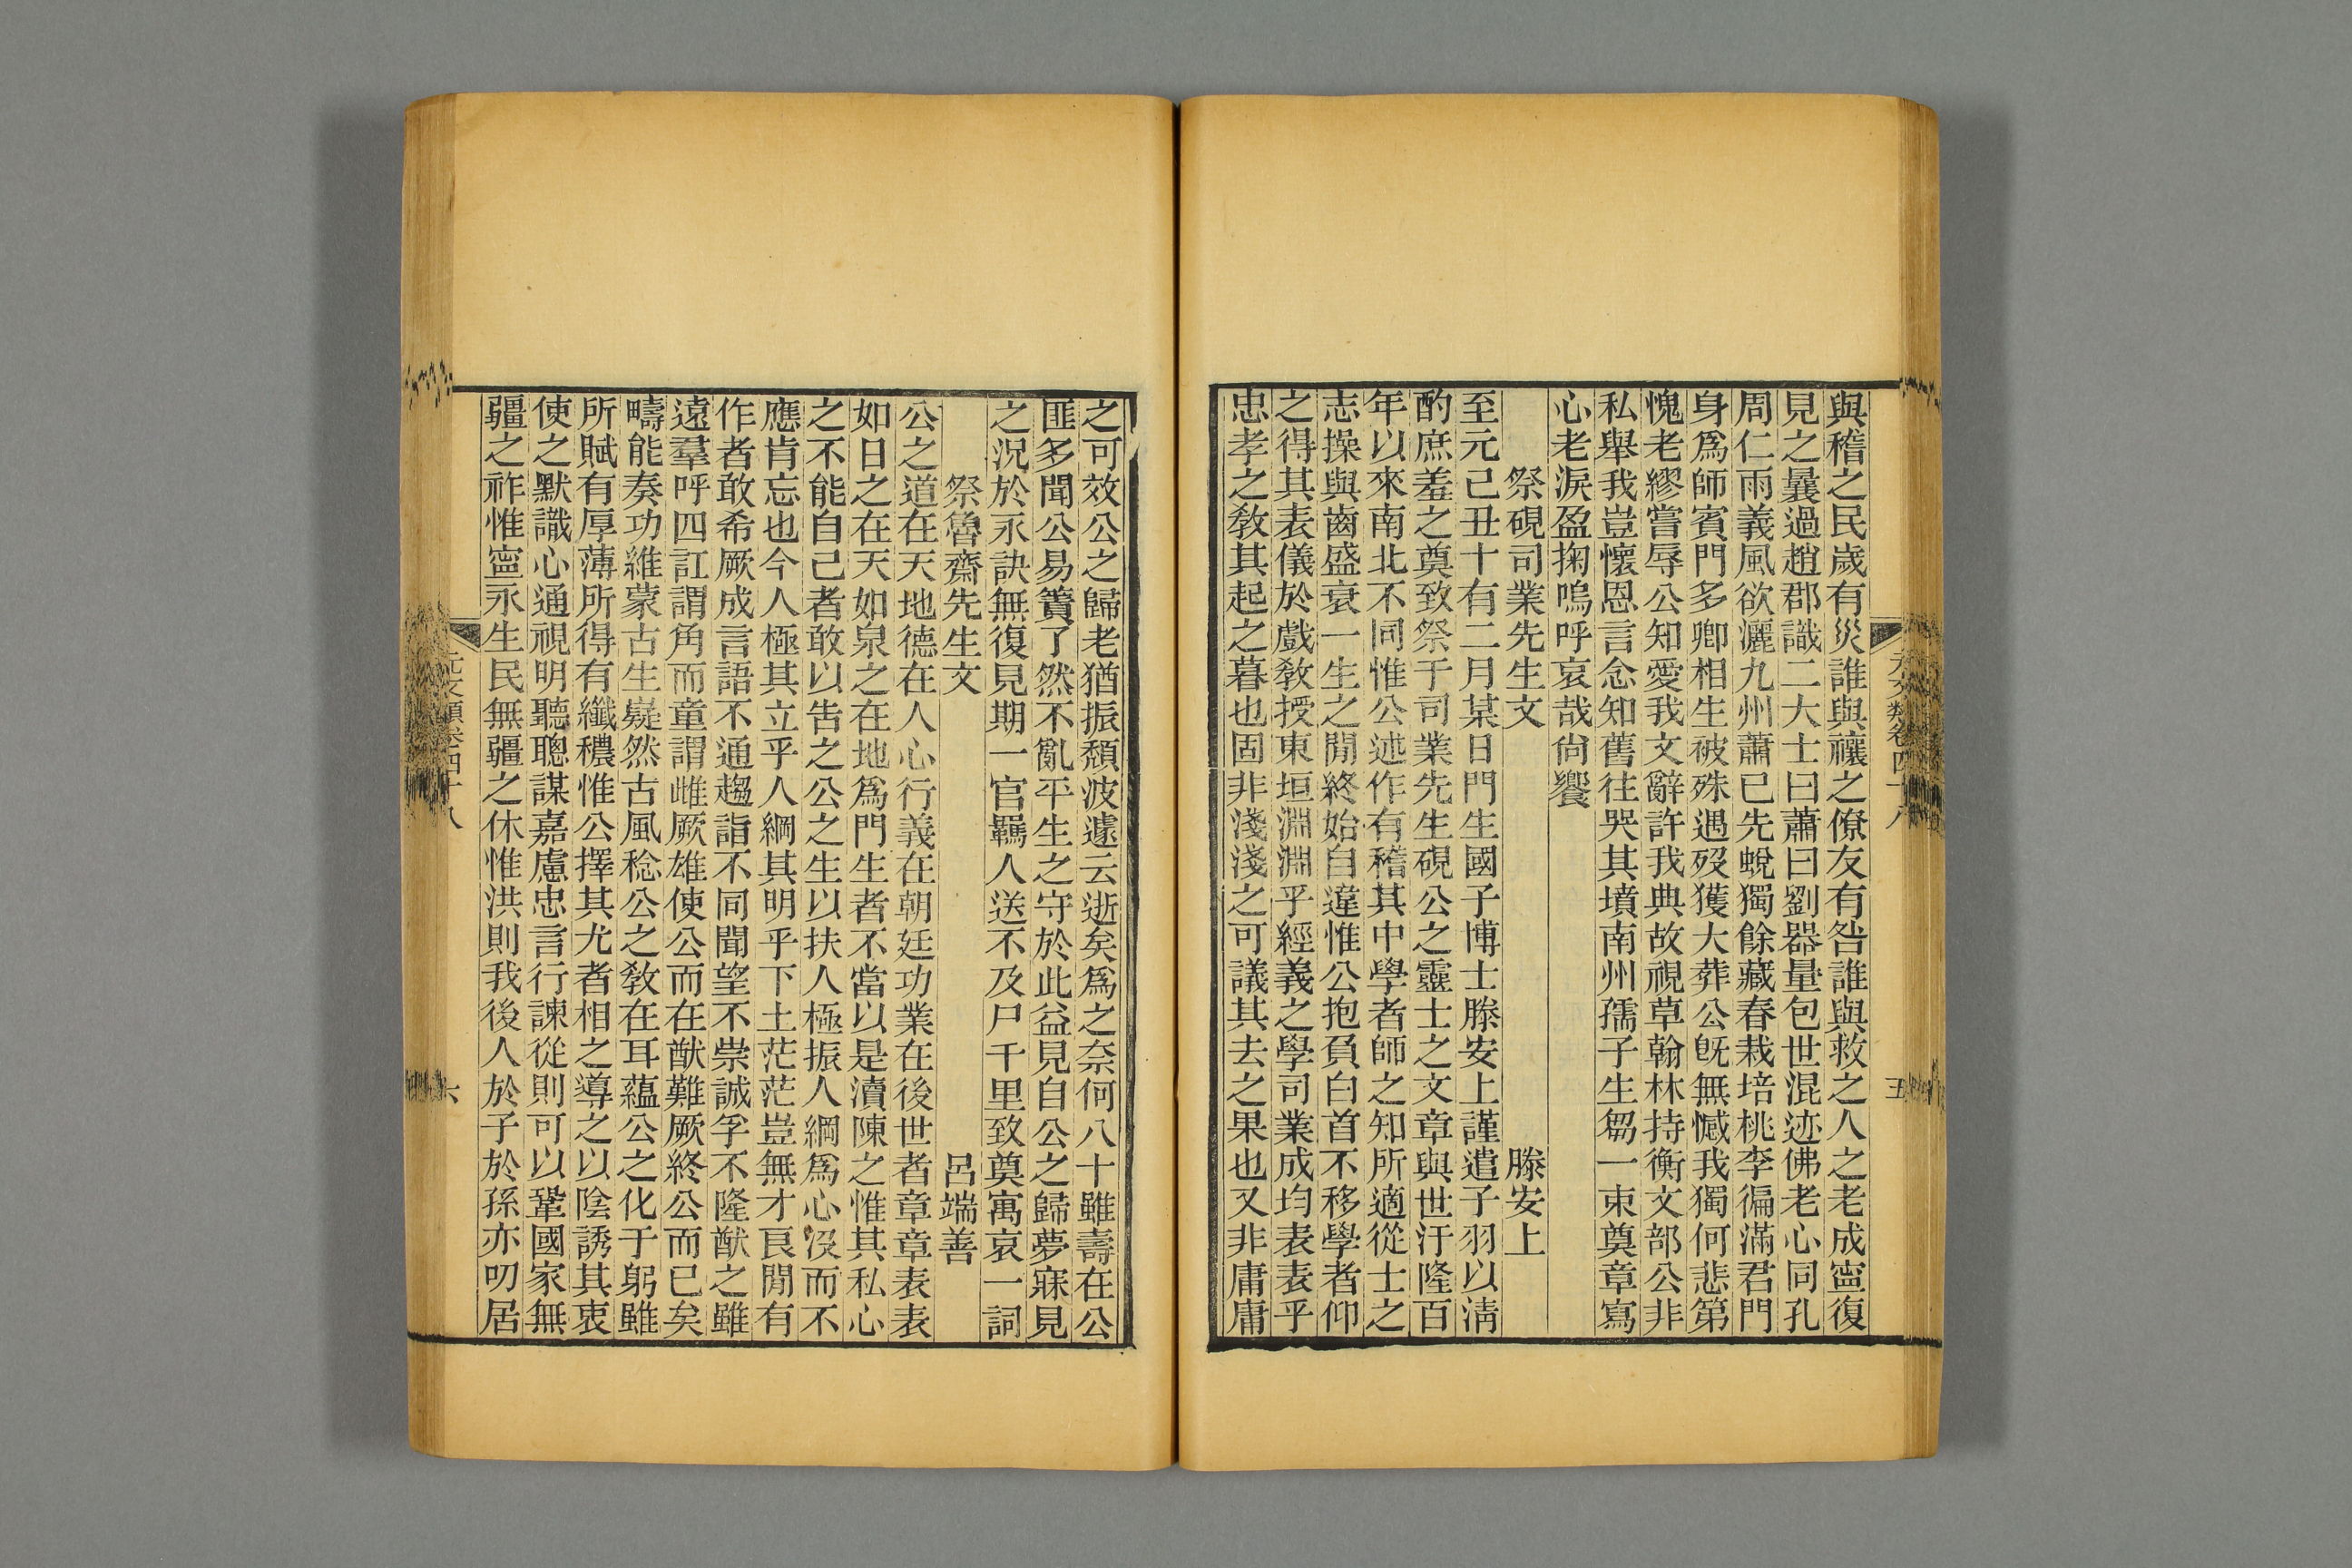 與稽之民歲有災誰與禳之僚友有咎誰與救之人之老成寧復
見之曩過趙郡識二大士曰蕭曰劉器量包世混迹佛老心同孔
周仁雨義風欲灑九州蕭已先蛻獨餘藏春栽培桃李徧滿君門
身爲師賓門多卿相生被殊遇歿獲大葬公旣無憾我獨何悲第
愧老繆嘗辱公知愛我文辭許我典故視草翰林持衡文部公非
私舉我豈懷恩言念知舊往哭其墳南州孺子生芻一束奠章寫
心老淚盈掬嗚呼哀哉尙饗
祭硯司業先生文 滕安上
至元己丑十有二月某日門生國子博士滕安上謹遣子羽以清
酌庶羞之奠致祭于司業先生硯公之靈士之文章與世汙隆百
年以來南北不同惟公述作有稽其中學者師之知所適從士之
志操與齒盛衰一生之閒終始自違惟公抱負白首不移學者仰
之得其表儀於戲敎授東垣淵淵乎經義之學司業成均表表乎
忠孝之敎其起之暮也固非淺淺之可議其去之果也又非庸庸
元文類卷四十八 五
之可效公之歸老猶振頹波遽云逝矣爲之奈何八十雖壽在公
匪多聞公易簀了然不亂平生之守於此益見自公之歸夢寐見
之況於永訣無復見期一官羈人送不及尸千里致奠寓哀一詞
祭魯齋先生文 呂端善
公之道在天地德在人心行義在朝廷功業在後世者章章表表
如日之在天如泉之在地爲門生者不當以是瀆陳之惟其私心
之不能自己者敢以告之公之生以扶人極振人綱爲心沒而不
應肯忘也今人極其立乎人綱其明乎下土茫茫豈無才良閒有
作者敢希厥成言語不通趨詣不同聞望不崇誠孚不隆猷之雖
遠羣呼四訌謂角而童謂雌厥雄使公而在猷難厥終公而已矣
疇能奏功維蒙古生嶷然古風稔公之敎在耳蘊公之化于躬雖
所賦有厚薄所得有纖穠惟公擇其尤者相之導之以陰誘其衷
使之默識心通視明聽聰謀嘉慮忠言行諫從則可以鞏國家無
疆之祚惟寧永生民無疆之休惟洪則我後人於子於孫亦叨居
元文類卷四十八 六